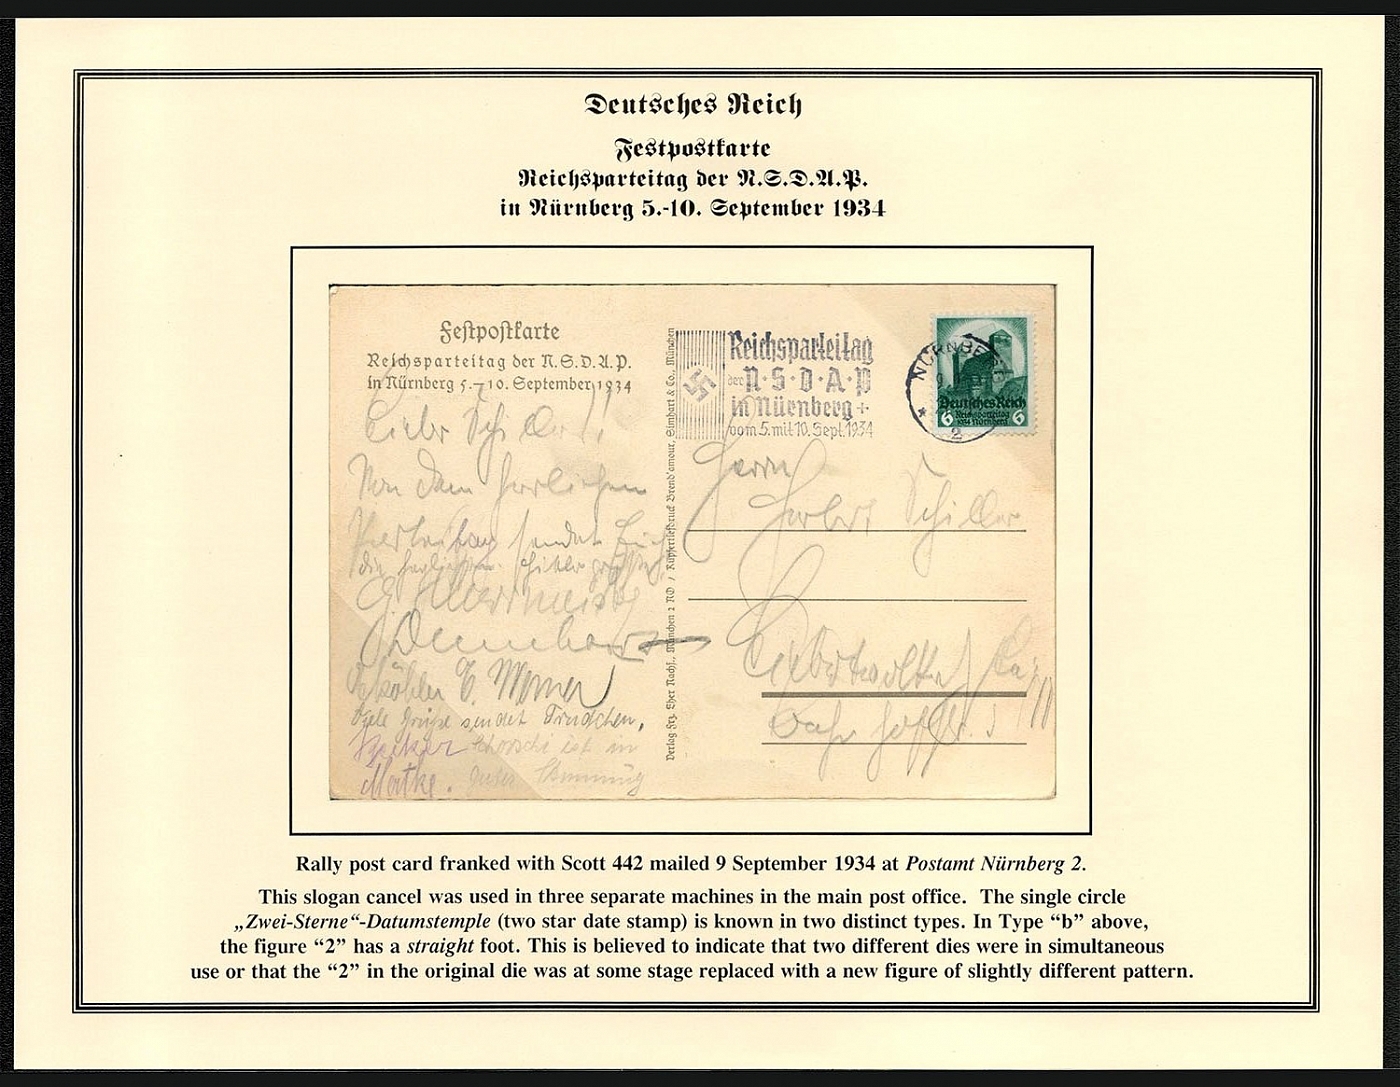 Deutsches Reich
Festpostkarte
Reichsparteitag der N.S.D.A.P.
in Nürnberg 5.-10. September 1934
Festpostkarte
Reichsparteitag der N.S.D.A.P.
in Nürnberg 5.–10. September 1934
Von dem herrlichen
Parteitag sendet
Köhler E. Werner
Viele Grüße sendet Trudchen,
ist in
guter Stimmung
Verlag Frz. Eher Nachf., München 2 NO / Kupfertiefdruck Brend'amour, Simhart & Co., München
Reichsparteitag
der N·S·D·A·P
in Nürnberg +
vom 5. mit 10. Sept. 1934
NÜRNBERG
* 2
Deutsches Reich
6 Reichsparteitag 6
1934 Nürnberg
Herrn
Herbert Schiller
Bahnhofstr. 5
Rally post card franked with Scott 442 mailed 9 September 1934 at Postamt Nürnberg 2.
This slogan cancel was used in three separate machines in the main post office. The single circle
„Zwei-Sterne“-Datumstemple (two star date stamp) is known in two distinct types. In Type “b” above,
the figure “2” has a straight foot. This is believed to indicate that two different dies were in simultaneous
use or that the “2” in the original die was at some stage replaced with a new figure of slightly different pattern.